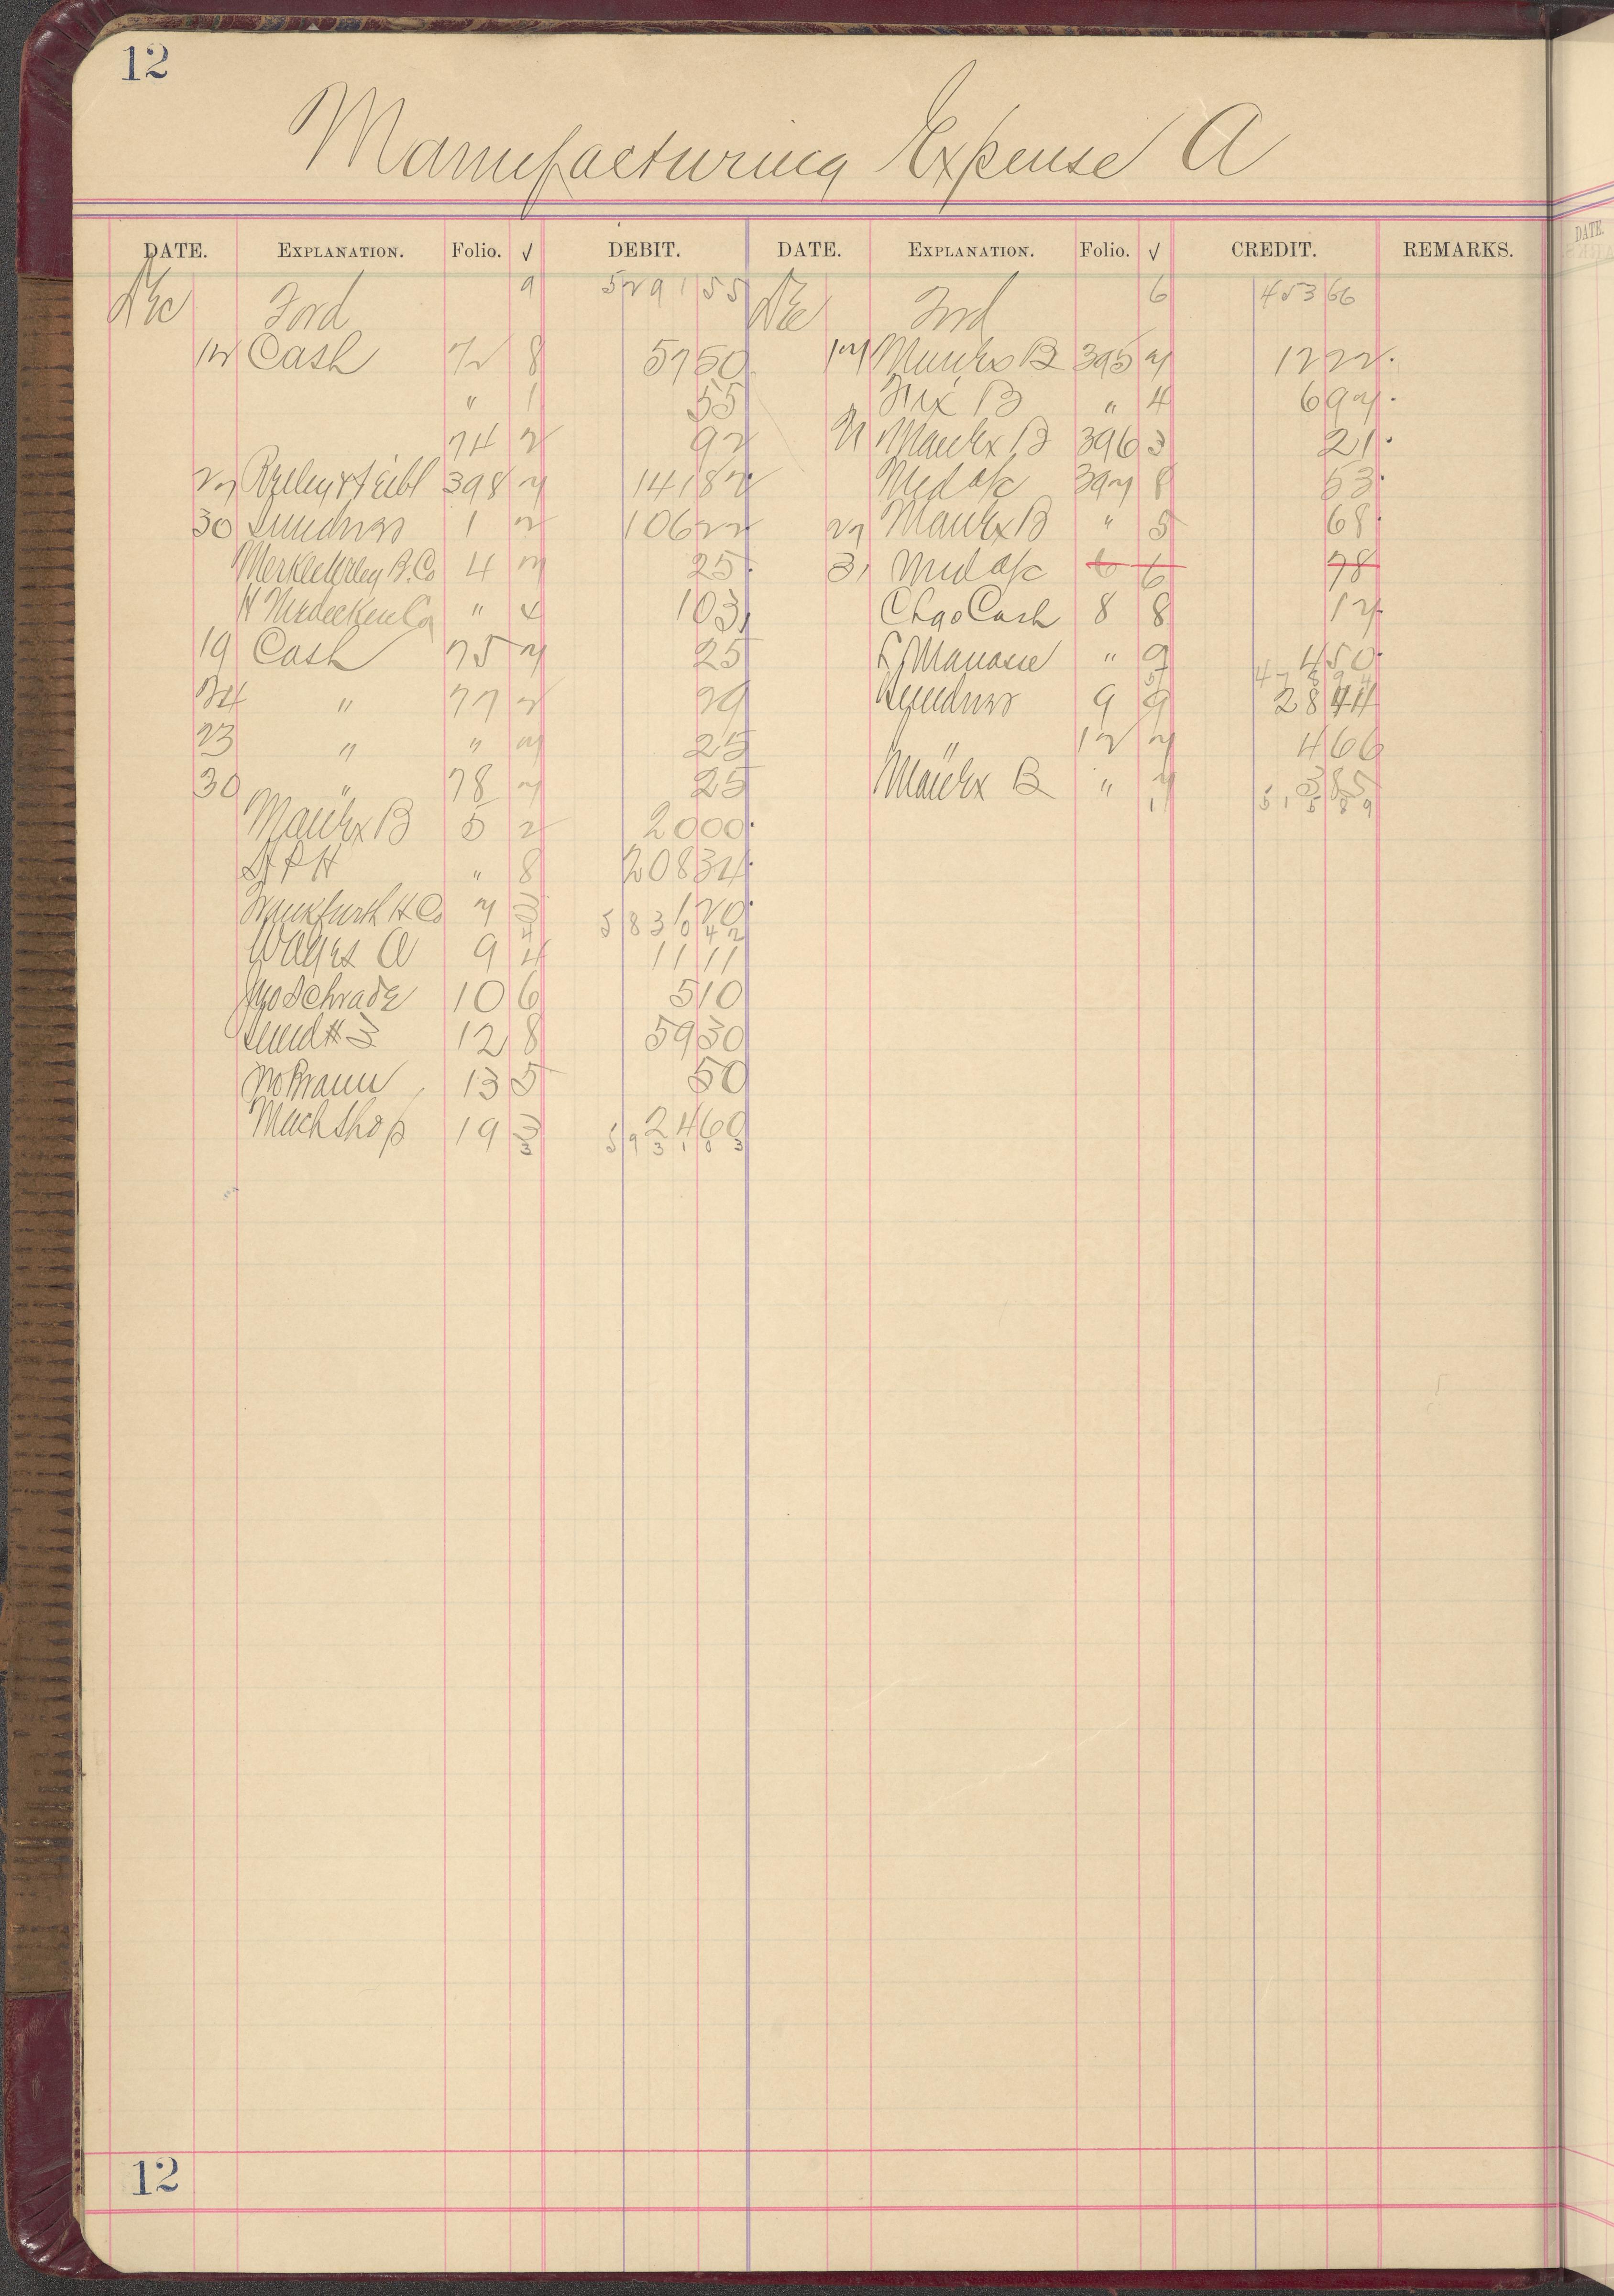 12
Manufacturing Expense A
DATE. EXPLANATION. Folio. √ DEBIT. DATE. EXPLANATION. Folio. √ CREDIT. REMARKS.
Dec Ford 9 5291 55 Dec Ford 6 453 66
12 Cash 72 8 57 50 17 Manfx B 395 7 12 22
" 1 55 Fix B " 4 6 97
74 2 92 21 Manfx B 396 3 21
27 398 7 141 82 Md a/c 397 8 53
30 Sundries 1 2 106 22 27 Manfx B " 5 68
Merkle Wiley B. Co 4 7 25 31 Md a/c 6 6 78
H Co " 4 1 03 Chgo Cash 8 8 17
19 Cash 75 7 25 F J Manasse " 9 4 50
24 " 77 2 29 Sundries 9 9 28 44
478 94
23 " " 7 25 " 12 7 4 66
30 " 78 7 25 Manfx B " 7 3 85
515 89
Manfx B 5 2 20 00
S P H " 8 208 34
Frankfurth H Co 7 3 1 20
5830 42
Wages A 9 4 11 11
Jno Schrade 10 6 5 10
Sund # 3 12 8 59 30
Jno Braun 13 5 50
Mach Shop 19 3 24 60
5931 03
12